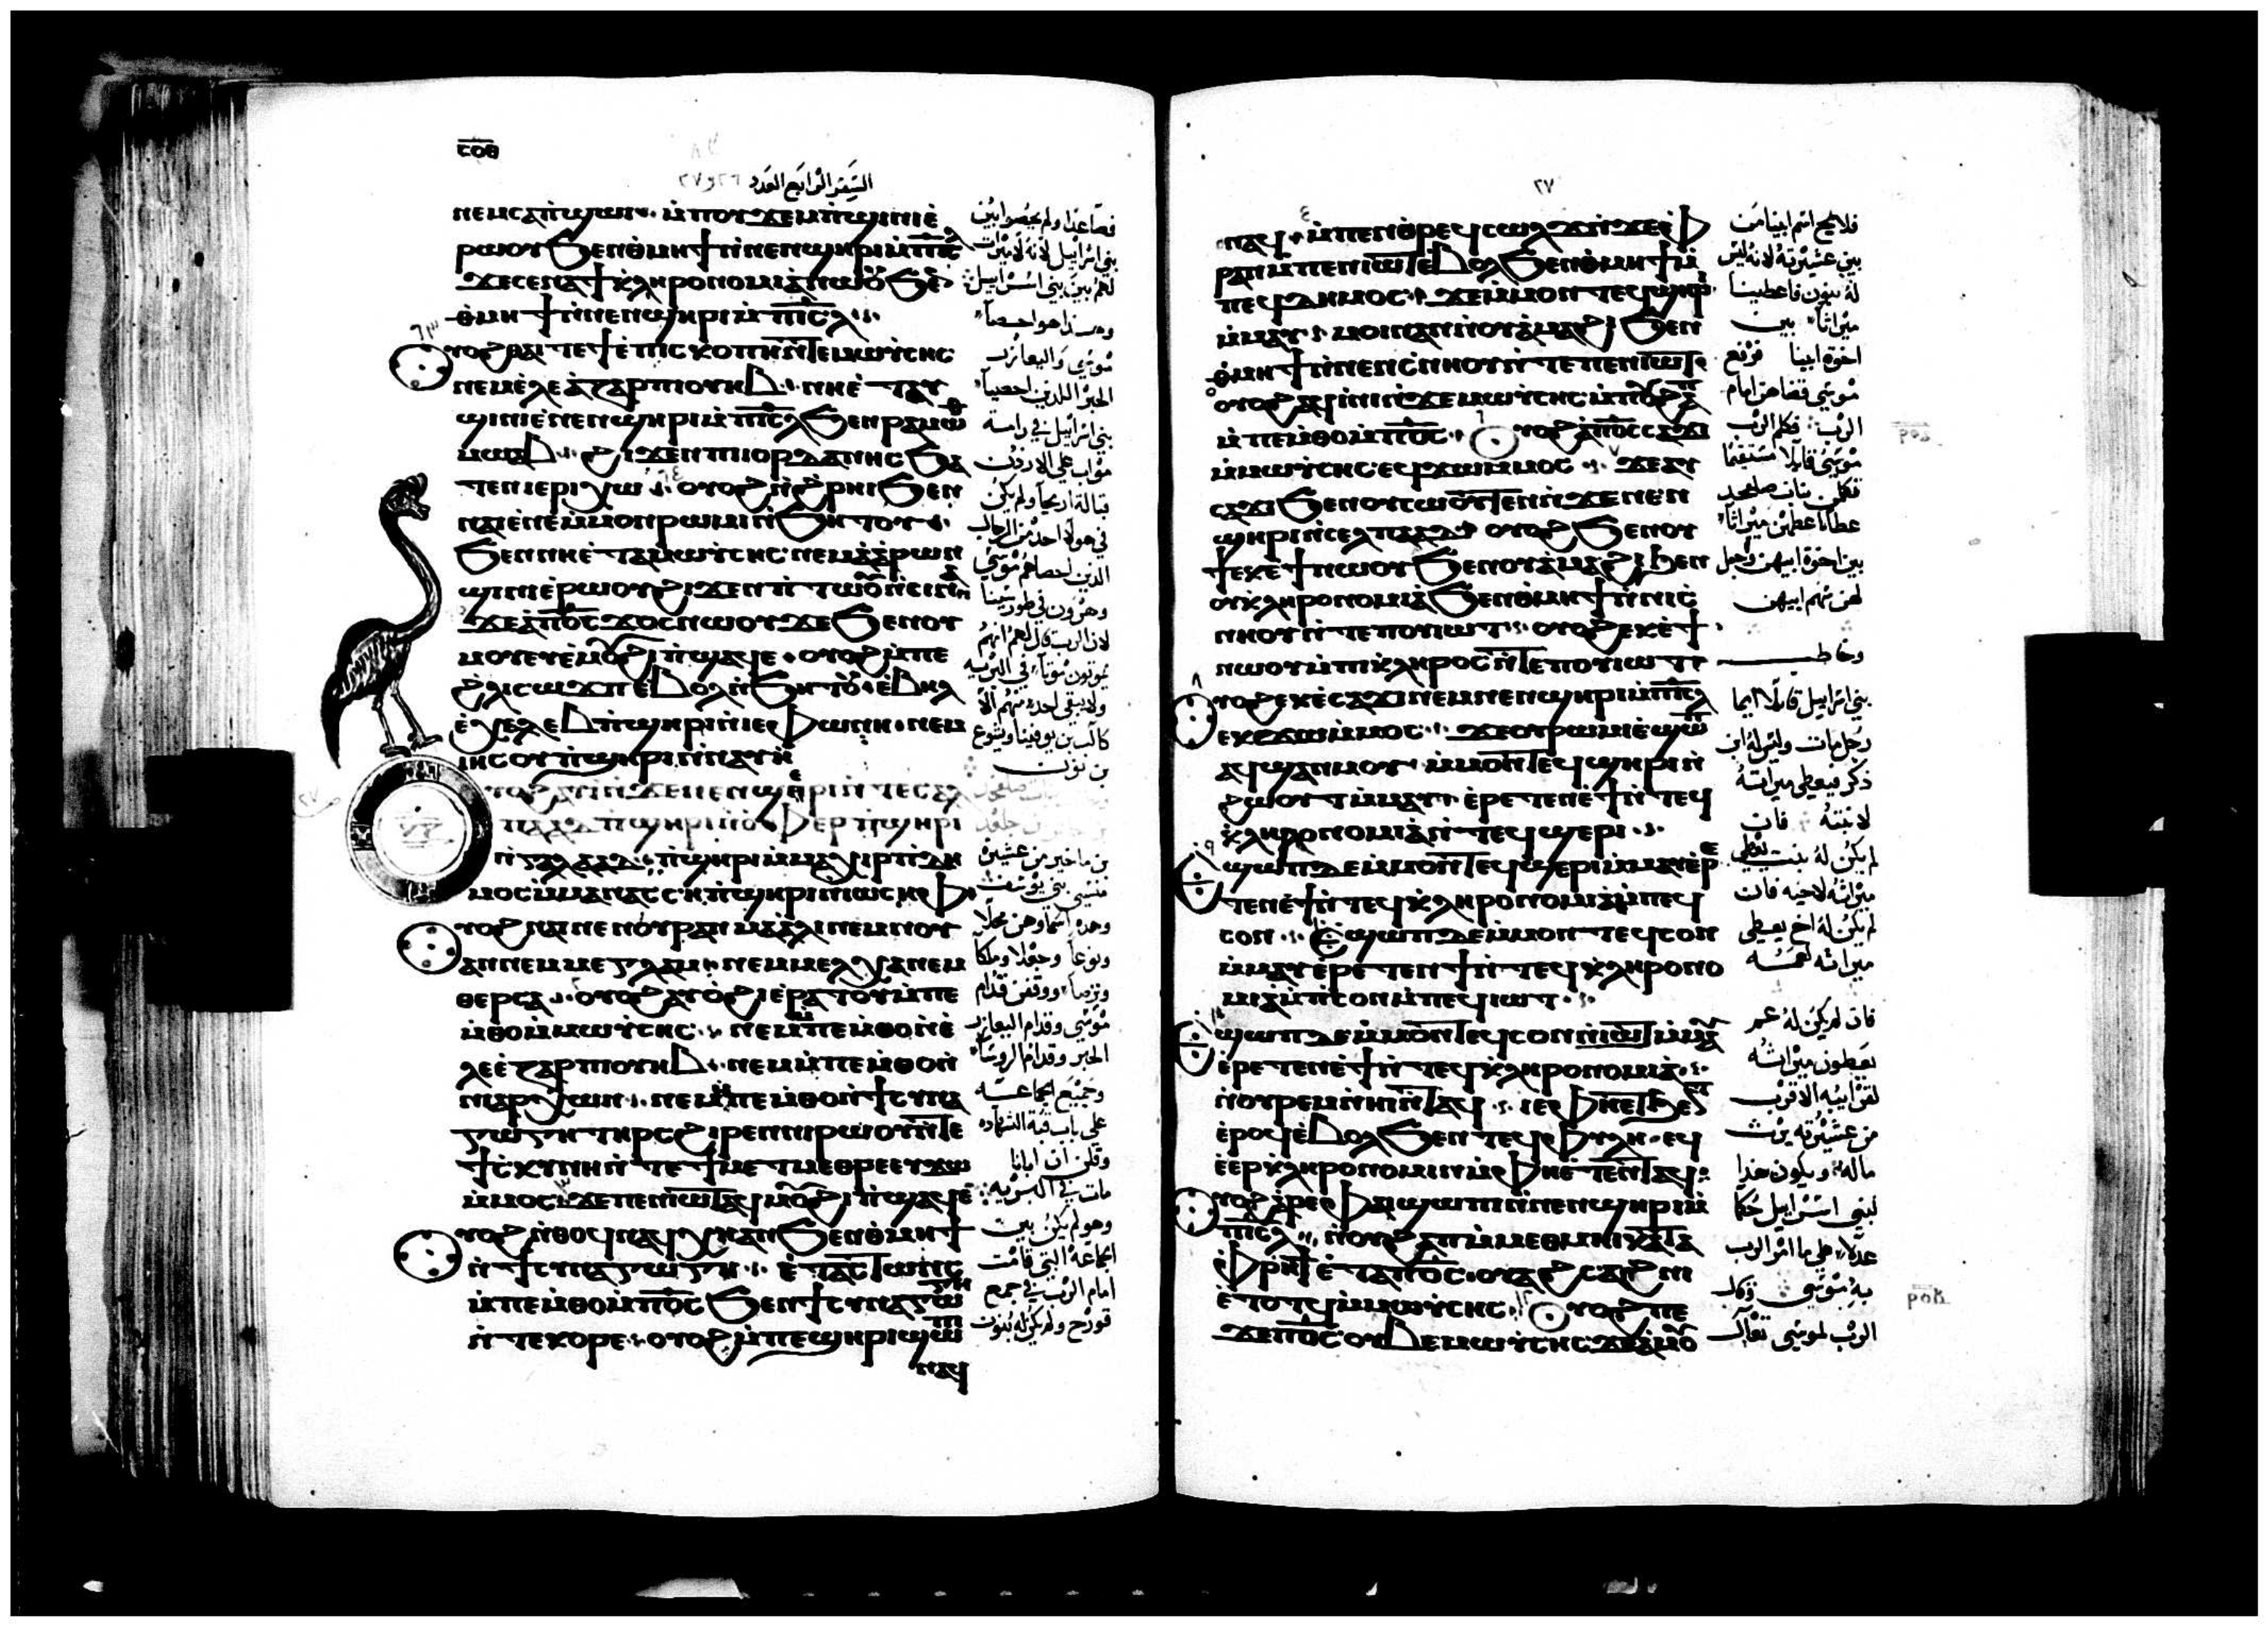 ⲥⲟⲑ
السفر الرابع العدد ٢٦ و ٢٧
ⲛⲉⲙⲥⲁⲡϣⲱⲓ ⲙⲡⲟⲩϫⲉⲙⲡϣⲓⲛⲓⲉ
ⲣⲱⲟⲩ ϧⲉⲛⲑⲙⲏϯ ⲛⲛⲉⲛϣⲏⲣⲓ ⲙⲡⲓⲥⲗ
ϫⲉⲥⲉⲛⲁϯⲕⲗⲏⲣⲟⲛⲟⲙⲓⲁ ⲛⲱⲟⲩ ϧⲉ
ⲑⲙⲏϯ ⲛⲛⲉⲛϣⲏⲣⲓ ⲙⲡⲓⲥⲗ
ⲩⲟϩ ⲑⲁⲓ ⲧⲉ ϯⲉⲡⲓⲥⲕⲟⲡⲏ ⲛⲧⲉⲙⲱⲩⲥⲏⲥ
ⲛⲉⲙ ⲉⲗⲉⲁⲍⲁⲣ ⲡⲓⲟⲩⲏⲃ ⲛⲏⲉⲧⲁⲩ
ϣⲓⲛⲓ ⲉⲛⲉⲛϣⲏⲣⲓ ⲙⲡⲓⲥⲗ ϧⲉⲛ ⲣⲁⲙⲱⲑ
ⲙⲱⲁⲃ ϩⲓϫⲉⲛ ⲡⲓⲓⲟⲣⲇⲁⲛⲏⲥ ϧⲁ
ⲧⲉⲛ ⲓⲉⲣⲓⲭⲱ ⲟⲩⲟϩ ⲛϩⲣⲏⲓ ϧⲉⲛ
ⲛⲁⲓ ⲉⲛⲉⲙⲙⲟⲛ ⲣⲱⲙⲓ ⲛϧⲏⲧⲟⲩ
ϧⲉⲛⲛⲏⲉⲧⲁⲙⲱⲩⲥⲏⲥ ⲛⲉⲙ ⲁⲁⲣⲱⲛ
ϣⲓⲛⲓⲉⲣⲱⲟⲩ ϩⲓϫⲉⲛ ⲡⲧⲱⲟⲩ ⲛⲥⲓⲛⲁ
ϫⲉⲁⲡⲟⲥ ϫⲟⲥ ⲛⲱⲟⲩ ϫⲉ ϧⲉⲛⲟⲩ
ⲙⲟⲩ ⲉⲩⲉⲙⲟⲩ ϩⲓ ⲡϣⲁϥⲉ ⲟⲩⲟϩ ⲙⲡⲉ
ϩⲗⲓ ⲥⲱϫⲡ ⲉⲃⲟⲗ ⲛϧⲏⲧⲟⲩ ⲉⲃⲏⲗ
ⲉⲭⲉⲗⲉⲃ ⲡϣⲏⲣⲓ ⲛⲓⲉⲫⲱⲛⲏ ⲛⲉⲙ
ⲓⲏⲥⲟⲩ ⲡϣⲏⲣⲓ ⲛⲛⲁⲩⲏ
ⲩⲟϩ ⲁⲩⲓ ⲛϫⲉ ⲛⲉⲛϣⲉⲣⲓ ⲛⲧⲉ ⲥⲁⲗ
ⲡⲁⲁⲇ ⲡϣⲏⲣⲓ ⲛⲟⲫⲉⲣ ⲡϣⲏⲣⲓ
ⲛⲅⲁⲗⲁⲁⲇ ⲡϣⲏⲣⲓ ⲙⲙⲁⲭⲓⲣ ⲡⲇⲏ
ⲙⲟⲥ ⲙⲙⲁⲛⲁⲥⲥⲏ ⲡϣⲏⲣⲓ ⲛⲓⲱⲥⲏⲫ
ⲩⲟϩ ⲛⲁⲓ ⲛⲉ ⲛⲟⲩⲣⲁⲛ ⲙⲁⲁⲗⲁ ⲛⲉⲙ ⲛⲟⲩ
ⲁⲛⲉⲙ ⲙⲉⲅⲗⲁⲙ ⲛⲉⲙ ⲙⲉⲗⲭⲁ ⲛⲉⲙ
ⲑⲉⲣⲥⲁ ⲟⲩⲟϩ ⲁⲩⲟϩⲓ ⲉⲣⲁⲧⲟⲩ ⲙⲡⲉ
ⲙⲑⲟ ⲙⲙⲱⲩⲥⲏⲥ ⲛⲉⲙ ⲡⲉⲙⲑⲟ ⲛⲉ
ⲗⲉⲉⲍⲁⲣ ⲡⲓⲟⲩⲏⲃ ⲛⲉⲙ ⲙⲡⲉⲙⲑⲟ ⲛ
ⲛⲓⲁⲣⲭⲱⲛ ⲛⲉⲙ ⲡⲉⲙⲑⲟ ⲛϯⲥⲩⲛⲁ
ⲅⲱⲅⲏ ⲧⲏⲣⲥ ϩⲓⲣⲉⲛ ⲛⲓⲣⲱⲟⲩ ⲛⲧⲉ
ϯⲥⲕⲩⲛⲏ ⲛⲧⲉ ϯⲙⲉⲧⲙⲉⲑⲣⲉ ⲉⲩϫⲱ
ⲙⲙⲟⲥ ϫⲉ ⲡⲉⲛⲓⲱⲧ ⲁϥⲙⲟⲩ ϩⲓ ⲡϣⲁϥⲉ
ⲩⲟϩ ⲛⲑⲟϥ ⲛⲁϥⲭⲏ ⲁⲛ ϧⲉⲛ ⲑⲙⲏϯ
ⲛϯⲥⲩⲛⲁⲅⲱⲅⲏ ⲉⲧⲁⲥⲧⲱⲛⲥ
ⲙⲡⲉⲙⲑⲟ ⲙⲡⲟⲥ ϧⲉⲛ ϯⲥⲩⲛⲁⲅⲱⲅⲏ
ⲛⲧⲉ ⲕⲟⲣⲉ ⲟⲩⲟϩ ⲙⲡⲉ ϣⲏⲣⲓ ϣⲱⲡⲓ
ⲛⲁϥ
فصاعدا ولم يحصوا بين
بني اسرائيل لانه لا ميراث
لهم بين بني اسرائيل
وهذا هو احصا
موسي واليعازر
الحبر اللذين احصيا
بني اسرائيل في رامة
مواب علي الاردن
قبالة اريحا ولم يكن
في هولا احد من الرجال
الذين احصاهم موسي
وهرون في طور سينا
لان الرب قال لهم انهم
يموتون موتا في البريه
ولا يبقي احد منهم الا
كالب بن يوفينا ويشوع
بن نون
بن ماخير من عشيرة
منسي بني يوسف
وهذه اسماوهن محلا
ونوعا وحجلا وملكا
وترصا ووقفن قدام
موسي وقدام اليعازر
الحبر وقدام الروسا
وجميع الجماعة
علي باب قبة الشهاده
وقلن ان ابانا
مات في البريه
وهو لم يكن بين
الجماعة التي قامت
امام الرب في جمع
قورح ولم يكن له بنون
٢٧
ⲛⲁϥ ⲙⲡⲉⲛⲑⲣⲉϥⲥⲱⲗϫ ⲛϫⲉ ⲫ
ⲣⲁⲛ ⲙⲡⲉⲛⲓⲱⲧ ⲉⲃⲟⲗ ϧⲉⲛ ⲑⲙⲏϯ ⲙ
ⲡⲉϥⲇⲏⲙⲟⲥ ϫⲉ ⲙⲙⲟⲛⲧⲉϥ ϣⲏⲣⲓ
ⲙⲙⲁⲩ ⲙⲟⲓ ⲛⲁⲛ ⲛⲟⲩⲁⲙⲁϩⲓ ϧⲉⲛ
ⲑⲙⲏϯ ⲛⲛⲉⲛⲥⲛⲏⲟⲩ ⲛⲧⲉ ⲡⲉⲛⲓⲱⲧ
ⲟⲩⲟϩ ⲁϥⲓⲛⲓ ⲛϫⲉ ⲙⲱⲩⲥⲏⲥ ⲙⲡⲟⲩϩⲁⲡ
ⲙⲡⲉⲙⲑⲟ ⲙⲡⲟⲥ ⲩⲟϩ ⲁⲡⲟⲥ ⲥⲁϫⲓ
ⲙⲙⲱⲩⲥⲏⲥ ⲉϥϫⲱ ⲙⲙⲟⲥ ϫⲉ ⲁⲩ
ⲥⲁϫⲓ ϧⲉⲛ ⲟⲩⲥⲱⲟⲩⲧⲉⲛ ⲛϫⲉ ⲛⲉⲛ
ϣⲏⲣⲓ ⲛⲥⲉⲗⲡⲁⲁⲇ ⲟⲩⲟϩ ϧⲉⲛ ⲟⲩ
ϯ ⲉⲕⲉϯ ⲛⲱⲟⲩ ϧⲉⲛ ⲟⲩⲁⲙⲁϩⲓ ϧⲉⲛ
ⲟⲩⲕⲗⲏⲣⲟⲛⲟⲙⲓⲁ ϧⲉⲛ ⲑⲙⲏϯ ⲛⲛⲓⲥ
ⲛⲏⲟⲩ ⲛⲧⲉ ⲡⲟⲩⲓⲱⲧ ⲟⲩⲟϩ ⲉⲕⲉϯ
ⲛⲱⲟⲩ ⲙⲡⲓⲕⲗⲏⲣⲟⲥ ⲛⲧⲉ ⲡⲟⲩⲓⲱⲧ
ⲩⲟϩ ⲉⲕⲉⲥⲁϫⲓ ⲛⲉⲙ ⲛⲉⲛϣⲏⲣⲓ ⲙⲡⲓⲥⲗ
ⲉⲕϫⲱ ⲙⲙⲟⲥ ϫⲉ ⲟⲩⲣⲱⲙⲓ ⲉϣⲱⲡ
ⲁϥϣⲁⲛⲙⲟⲩ ⲙⲙⲟⲛⲧⲉϥ ϣⲏⲣⲓ ⲛ
ϩⲱⲟⲩⲧ ⲙⲙⲁⲩ ⲉⲣⲉⲧⲉⲛⲉϯ ⲛⲧⲉϥ
ⲕⲗⲏⲣⲟⲛⲟⲙⲓⲁ ⲛⲧⲉϥϣⲉⲣⲓ
ϣⲱⲡ ⲇⲉ ⲙⲙⲟⲛⲧⲉϥ ϣⲉⲣⲓ ⲙⲙⲁⲩ ⲉⲣⲉ
ⲧⲉⲛⲉϯ ⲛⲧⲉϥⲕⲗⲏⲣⲟⲛⲟⲙⲓⲁ ⲙⲡⲉϥ
ⲥⲟⲛ ⲉϣⲱⲡ ⲇⲉ ⲙⲙⲟⲛⲧⲉϥ ⲥⲟⲛ
ⲙⲙⲁⲩ ⲉⲣⲉⲧⲉⲛϯ ⲛⲧⲉϥⲕⲗⲏⲣⲟⲛⲟ
ⲙⲓⲁ ⲙⲡⲥⲟⲛ ⲙⲡⲉϥⲓⲱⲧ
ϣⲱⲡ ⲇⲉ ⲙⲙⲟⲛⲧⲉϥ ⲥⲟⲛ ⲛⲓⲱⲧ ⲙⲙⲁⲩ
ⲉⲣⲉⲧⲉⲛⲉϯ ⲛⲧⲉϥⲕⲗⲏⲣⲟⲛⲟⲙⲓⲁ
ⲛⲟⲩⲣⲉⲙⲛⲏⲓ ⲛⲧⲁϥ ⲓⲉ ⲫⲏⲉⲧϧⲉⲛⲧ
ⲉⲣⲟϥ ⲉⲃⲟⲗ ϧⲉⲛ ⲧⲉϥⲫⲩⲗⲏ ⲉϥ
ⲉⲉⲣⲕⲗⲏⲣⲟⲛⲟⲙⲓⲛ ⲙⲫⲏⲉⲧⲉⲛⲧⲁϥ
ⲩⲟϩ ⲉⲣⲉ ⲫⲁⲓ ϣⲱⲡⲓ ⲛⲛⲉⲛϣⲏⲣⲓ ⲙ
ⲡⲓⲥⲗ ⲛⲟⲩϩⲁⲡ ⲙⲙⲉⲑⲙⲏⲓ ⲕⲁⲧⲁ
ⲫⲣⲏϯ ⲉⲧⲁⲡⲟⲥ ⲟⲩⲁϩⲥⲁϩⲛⲓ
ⲉⲧⲟⲧϥ ⲙⲙⲱⲩⲥⲏⲥ ⲩⲟϩ ⲡⲉ
ϫⲉ ⲡⲟⲥ ⲟⲩⲃⲉ ⲙⲱⲩⲥⲏⲥ ϫⲉ ⲁⲙⲟⲩ
فلا يمح اسم ابينا من
بين عشيرته لانه ليس
له بنون فاعطينا
ميراثا بين
اخوة ابينا فرفع
موسي قضاهن امام
الرب فكلم الرب
موسي قايلا مستقيما
تكلمن بنات صلفحد
عطا اعطهن ميراثا
بين اخوة ابيهن واجعل
لهن سهم ابيهن
وخاطب
بني اسرايل قايلا ايما
رجل مات وليس له ابن
ذكر فيعطي ميراثه
لابنته فان
لم يكن له بنت يعطي
ميراثه لاخيه فان
لم يكن له اخ يعطي
ميراثه لعمه
فان لم يكن له عم
يعطون ميراثه
لقرايبه الاقرب
من عشيرته يرث
ماله ويكون هذا
لبني اسرايل حكما
عدلا علي ما امر الرب
به موسي وقال
الرب لموسي تعال